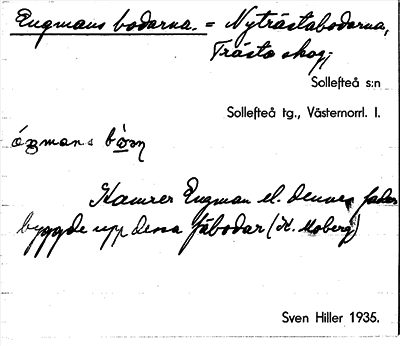 Engmans bodarna. = Nyträstabodarna,
Trästa skog;
Sollefteå s:n
Sollefteå tg., Västernorrl. l.
Kamrer Engman el. dennes fader
byggde upp dessa fäbodar (K. Moberg)
Sven Hiller 1935.